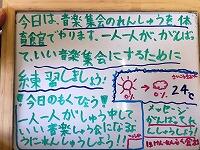 今日は、音楽集会のれんしゅうを体
育館でやります。一人一人が、がんばっ
て、いい音楽集会にするために
練習しましょう!
！今日のもくひょう！
一人一人がしゅう中して
いい音楽しゅう会になるよ
うにれんしゅうしよう！！
0%
24℃
メッセージ
がんばってれ
んしゅうしよう!